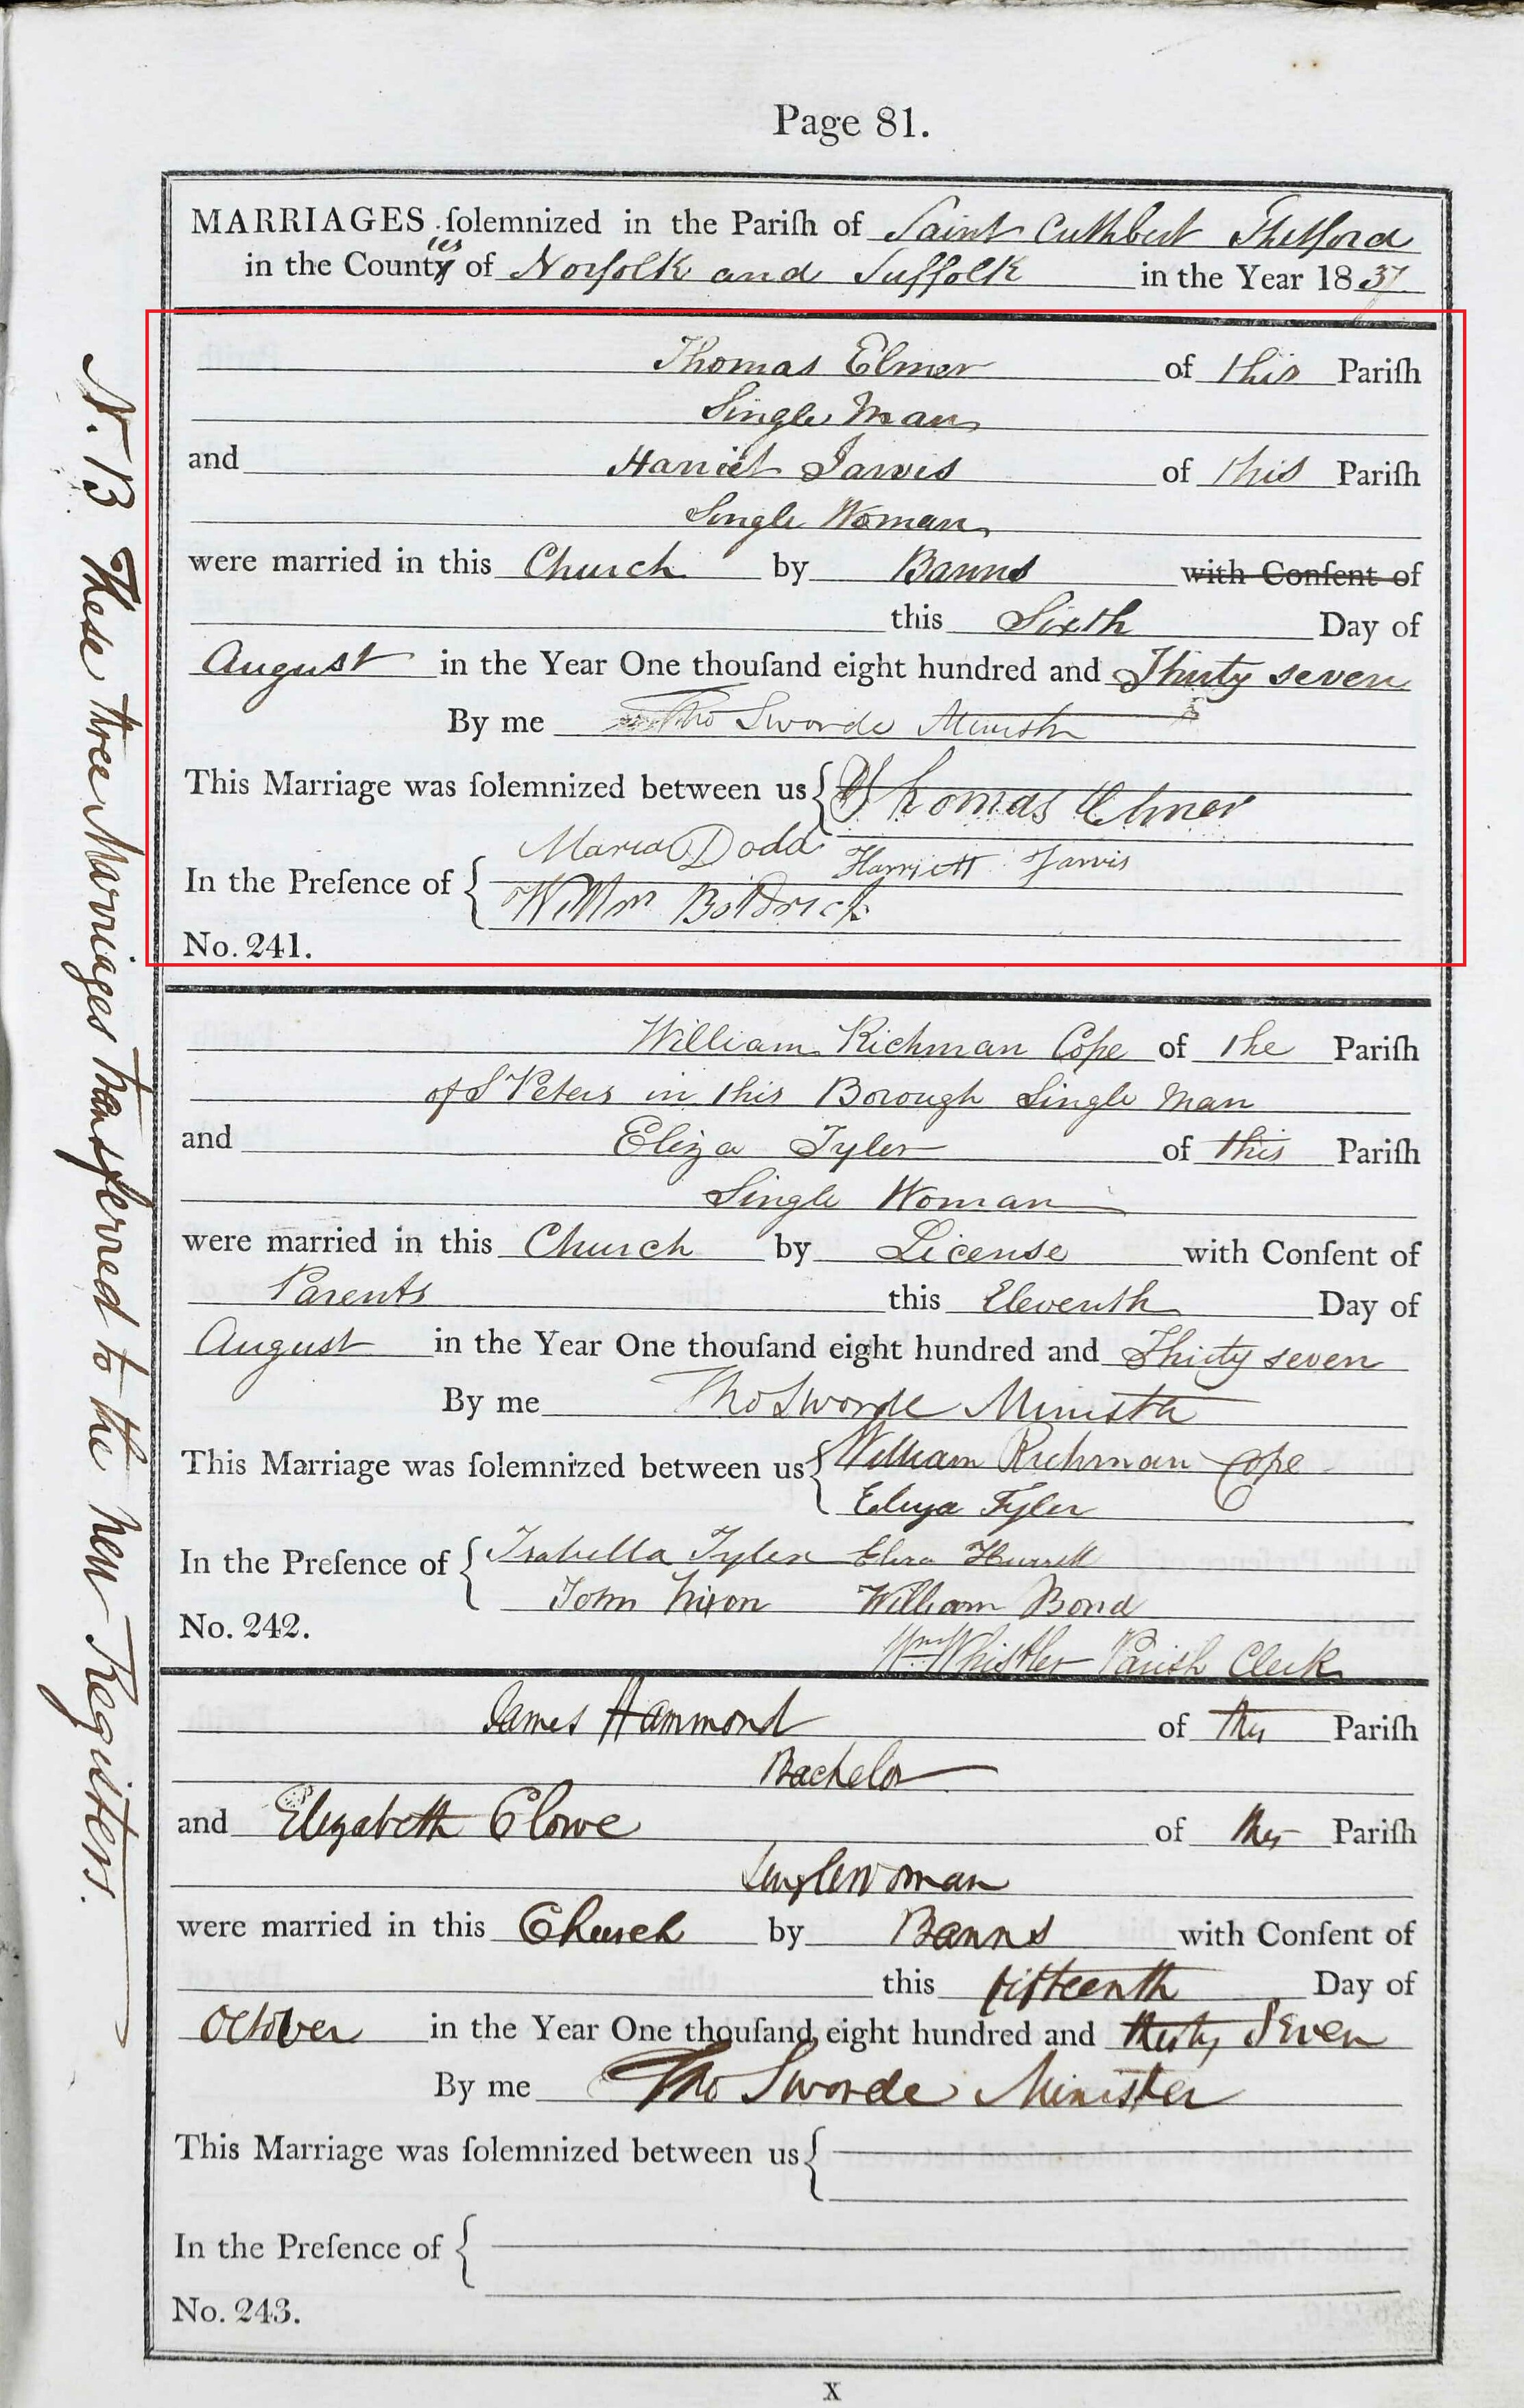 Page 81.
MARRIAGES ſolemnized in the Pariſh of Saint Cuthbert Thetford
in the Counties of Norfolk and Suffolk in the Year 1837
Thomas Elmer of this Pariſh
Single Man
and Harriet Jarvis of this Pariſh
Single Woman
were married in this Church by Banns with Conſent of
this Sixth Day of
August in the Year One thouſand eight hundred and Thirty seven
By me Tho Sworde Minister
This Marriage was ſolemnized between us { Thomas Elmer
Harriett Jarvis
In the Preſence of { Maria Dodd
Willm Boldrick
No. 241.
William Richman Cope of the Pariſh
of St Peters in this Borough Single Man
and Eliza Tyler of this Pariſh
Single Woman
were married in this Church by License with Conſent of
Parents this Eleventh Day of
August in the Year One thouſand eight hundred and Thirty seven
By me Tho Sworde Minister
This Marriage was ſolemnized between us { William Richman Cope
Eliza Tyler
In the Preſence of { Isabella Tyler Eliza
John Nixon William Bond
No. 242.
Wm Whistler Parish Clerk
James Hammond of this Pariſh
Bachelor
and Elizabeth Clowe of this Pariſh
Singlewoman
were married in this Church by Banns with Conſent of
this fifteenth Day of
October in the Year One thouſand eight hundred and thirty Seven
By me Tho Sworde Minister
This Marriage was ſolemnized between us {
In the Preſence of {
No. 243.
X
N.B These three Marriages transferred to the new Registers.